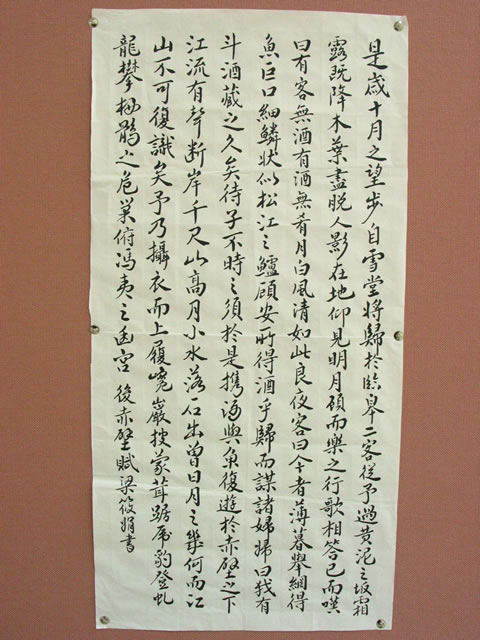 是歳十月之望步自雪堂將歸於臨皋二客從予過黃泥之坂霜
露既降木葉盡脫人影在地仰見明月顧而樂之行歌相答已而嘆
曰有客無酒有酒無肴月白風清如此良夜客曰今者薄暮舉網得
魚巨口細鱗狀似松江之鱸顧安所得酒乎歸而謀諸婦婦曰我有
斗酒藏之久矣待子不時之須於是攜酒與魚復遊於赤壁之下
江流有聲断岸千尺山高月小水落石出曾日月之幾何而江
山不可復識矣予乃攝衣而上履巉巖披蒙茸踞虎豹登虬
龍攀栖鶻之危巢俯馮夷之幽宮 後赤壁賦梁筱娟書